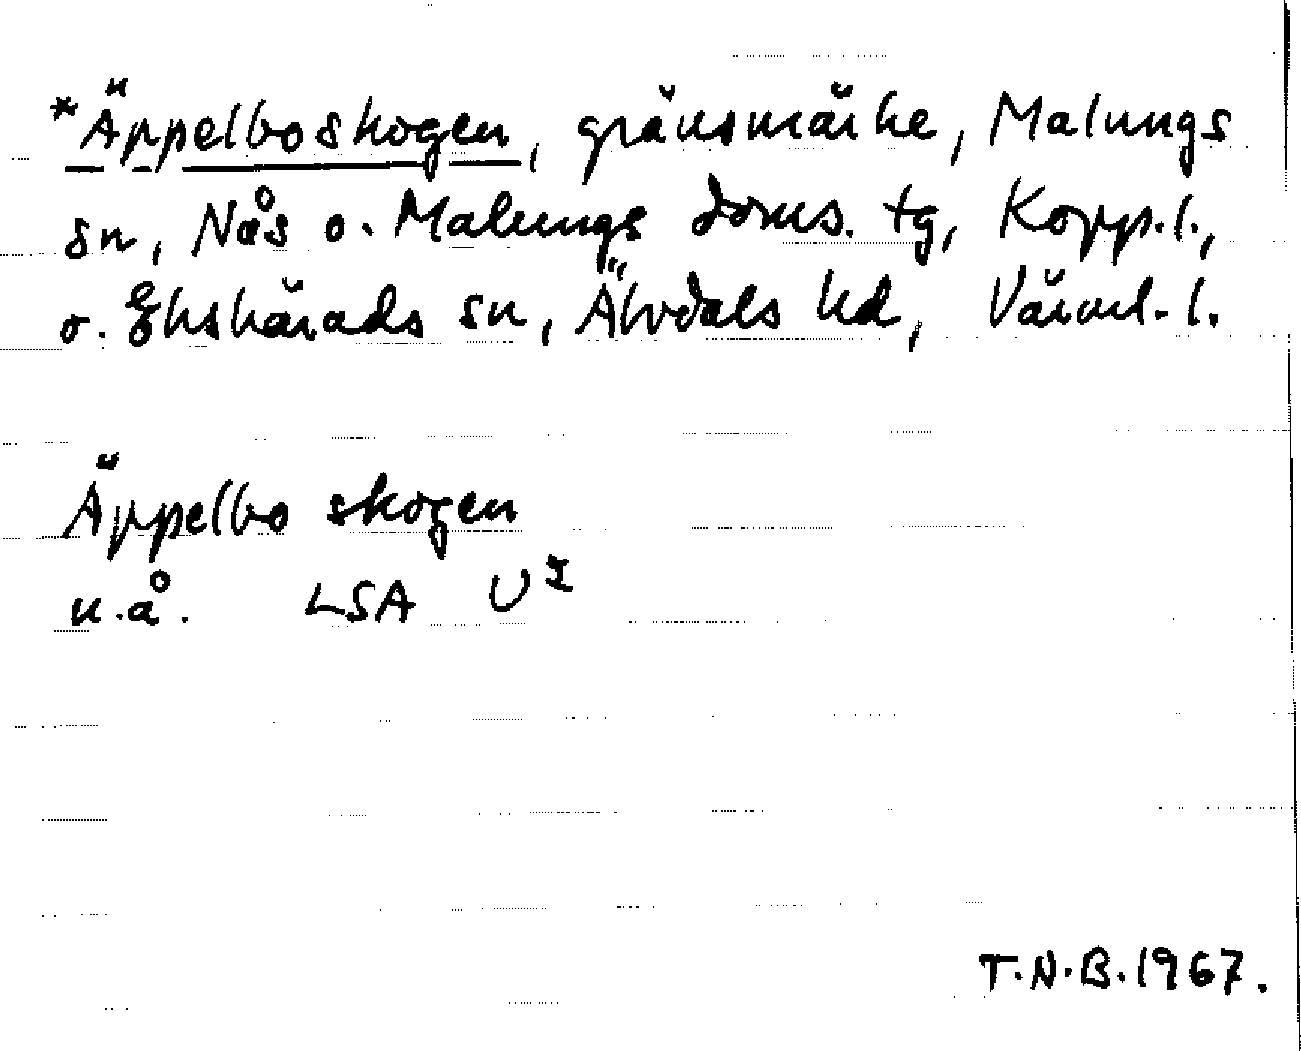 *Äppelboskogen, gränsmärke, Malungs
sn, Nås o. Malungs doms. tg, Kopp.l.,
o. Ekshärads sn, Älvdals hd, Värml. l.
Äppelbo skogen
u.å. LSA U
T.N.B. 1967.